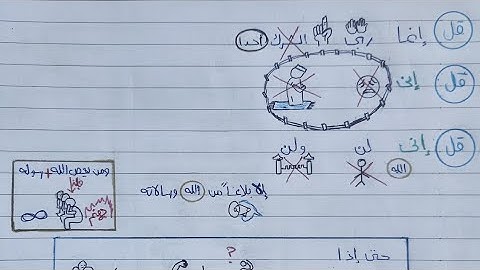 قل إنما ربي الشرك أحدا
قل إني
قل إني لن ولن
الله
إلا بلاغا من الله ورسالاته
ومن يعص الله ورسوله
جهنم
حتى إذا ?